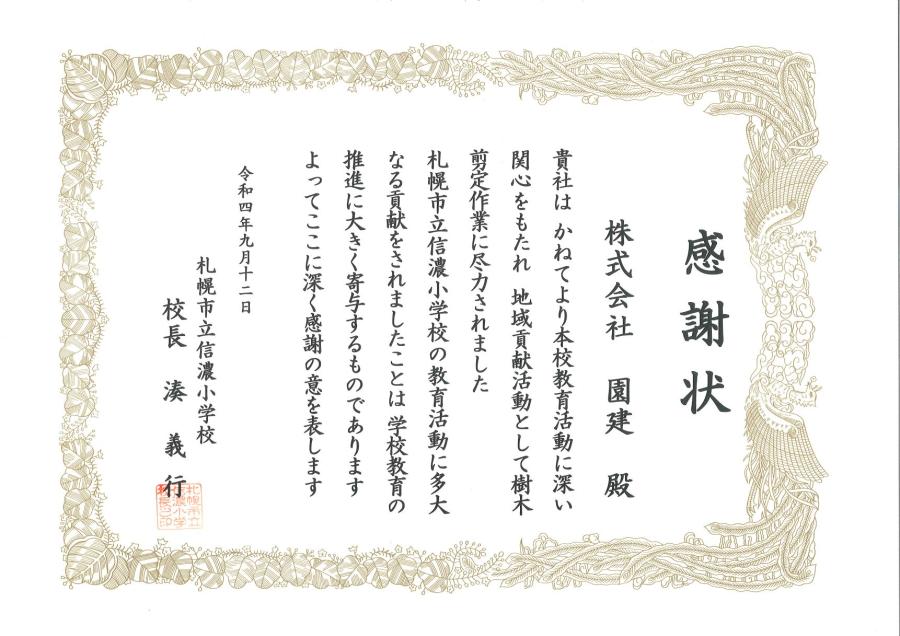 感謝状
株式会社 園建 殿
貴社は かねてより本校教育活動に深い
関心をもたれ 地域貢献活動として樹木
剪定作業に尽力されました
札幌市立信濃小学校の教育活動に多大
なる貢献をされましたことは 学校教育の
推進に大きく寄与するものであります
よってここに深く感謝の意を表します
令和四年九月十二日
札幌市立信濃小学校
校長 湊 義行
札幌市立
信濃小学
校長之印